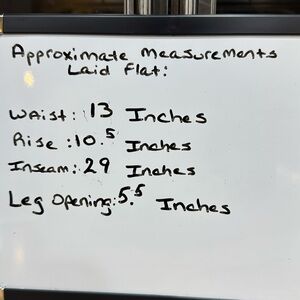 Approximate Measurements
Laid Flat:
Waist: 13 Inches
Rise: 10.5 Inches
Inseam: 29 Inches
Leg Opening: 5.5 Inches